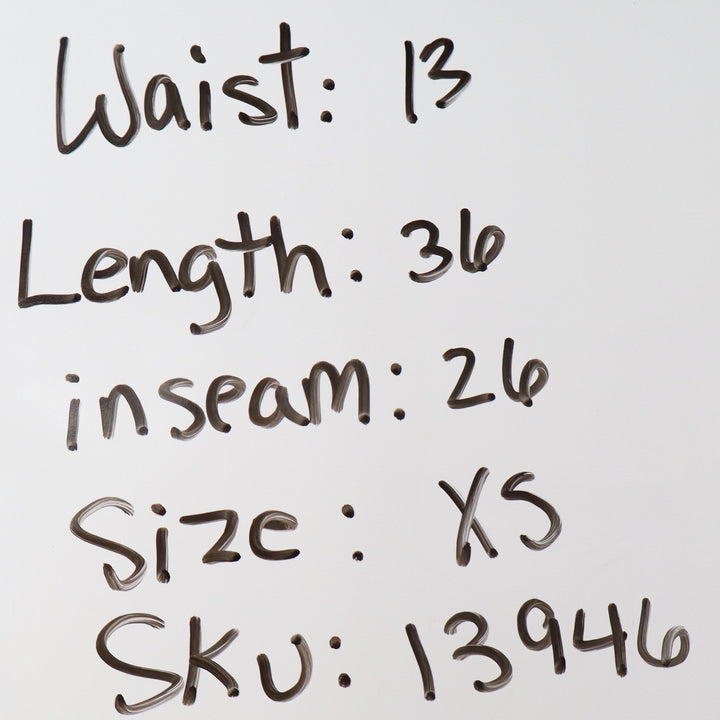 Waist: 13
Length: 36
inseam: 26
Size: XS
SKU: 13946